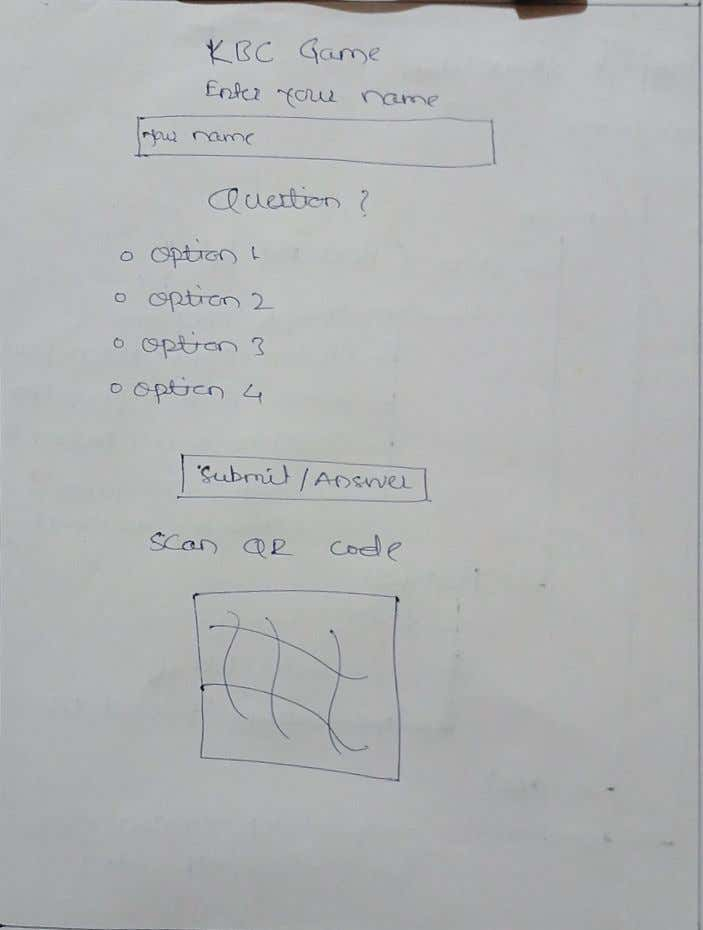 KBC Game
Enter your name
your name
Question ?
option 1
option 2
option 3
option 4
Submit / Answer
Scan QR code